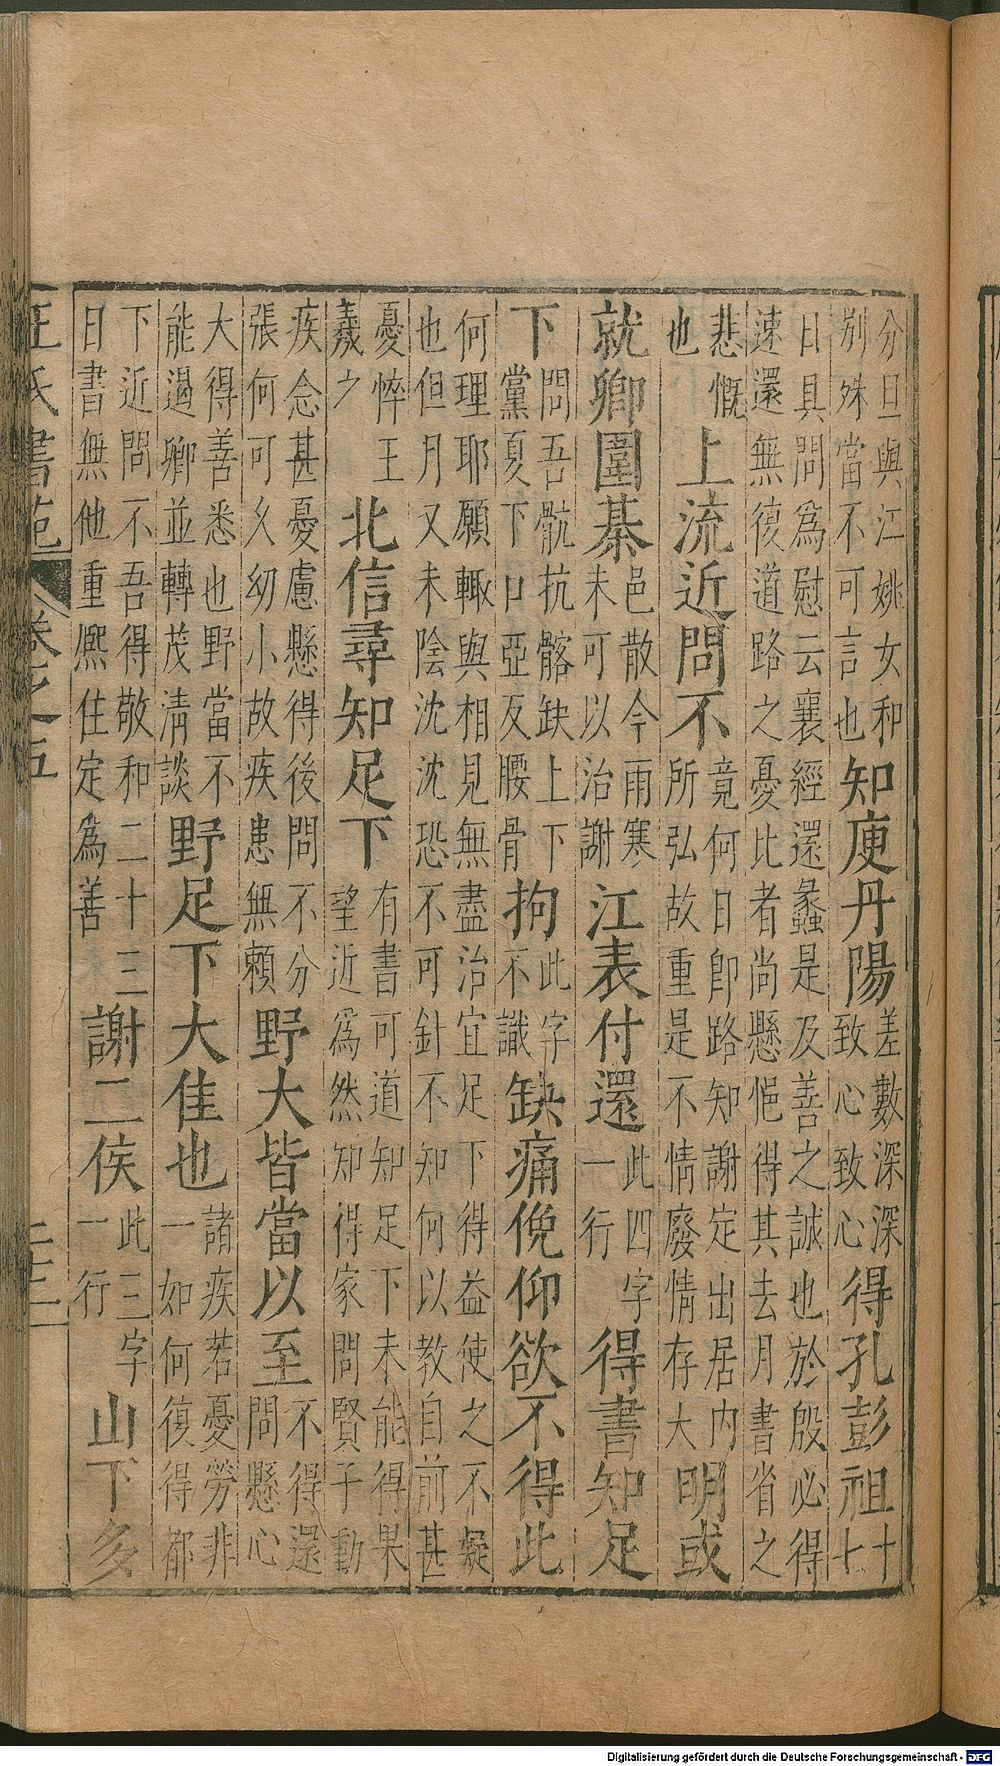 分旦與江姚女和
別殊當不可言也
知庾丹陽
差數深深
致心致心
得孔彭祖
十
七
日具問為慰云襄經還蠡是及善之誠也於殷必得
速還無復道路之憂比者尚懸悒得其去月書省之
悲慨
也
上流近問不
竟何日即路知謝定出居内
所弘故重是不情廢情存大
明或
就卿圍棊
邑散今雨寒
未可以治謝
江表付還
此四字
一行
得書知足
下
問吾骯抗髂缺上下
黨夏下口亞反腰骨
拘
此字
不識
缺痛俛仰欲不得此
何理耶願輙與相見無盡治宜足下得益使之不疑
也但月又未陰沈沈恐不可針不知何以教自前甚
憂悴王
羲之
北信尋知足下
有書可道知足下未能得果
望近為然知得家問賢子動
疾念甚憂慮懸得後問不分
張何可久幼小故疾患無賴
野大皆當以至
不得還
問懸心
大得善悉也野當不
能過卿並轉茂清談
野足下大佳也
諸疾若憂勞非
一如何復得都
下近問不吾得敬和二十三
日書無他重熈住定為善
謝二侯
此三字
一行
山下多
王氏書苑
卷之五
Digitalisierung gefördert durch die Deutsche Forschungsgemeinschaft - DFG